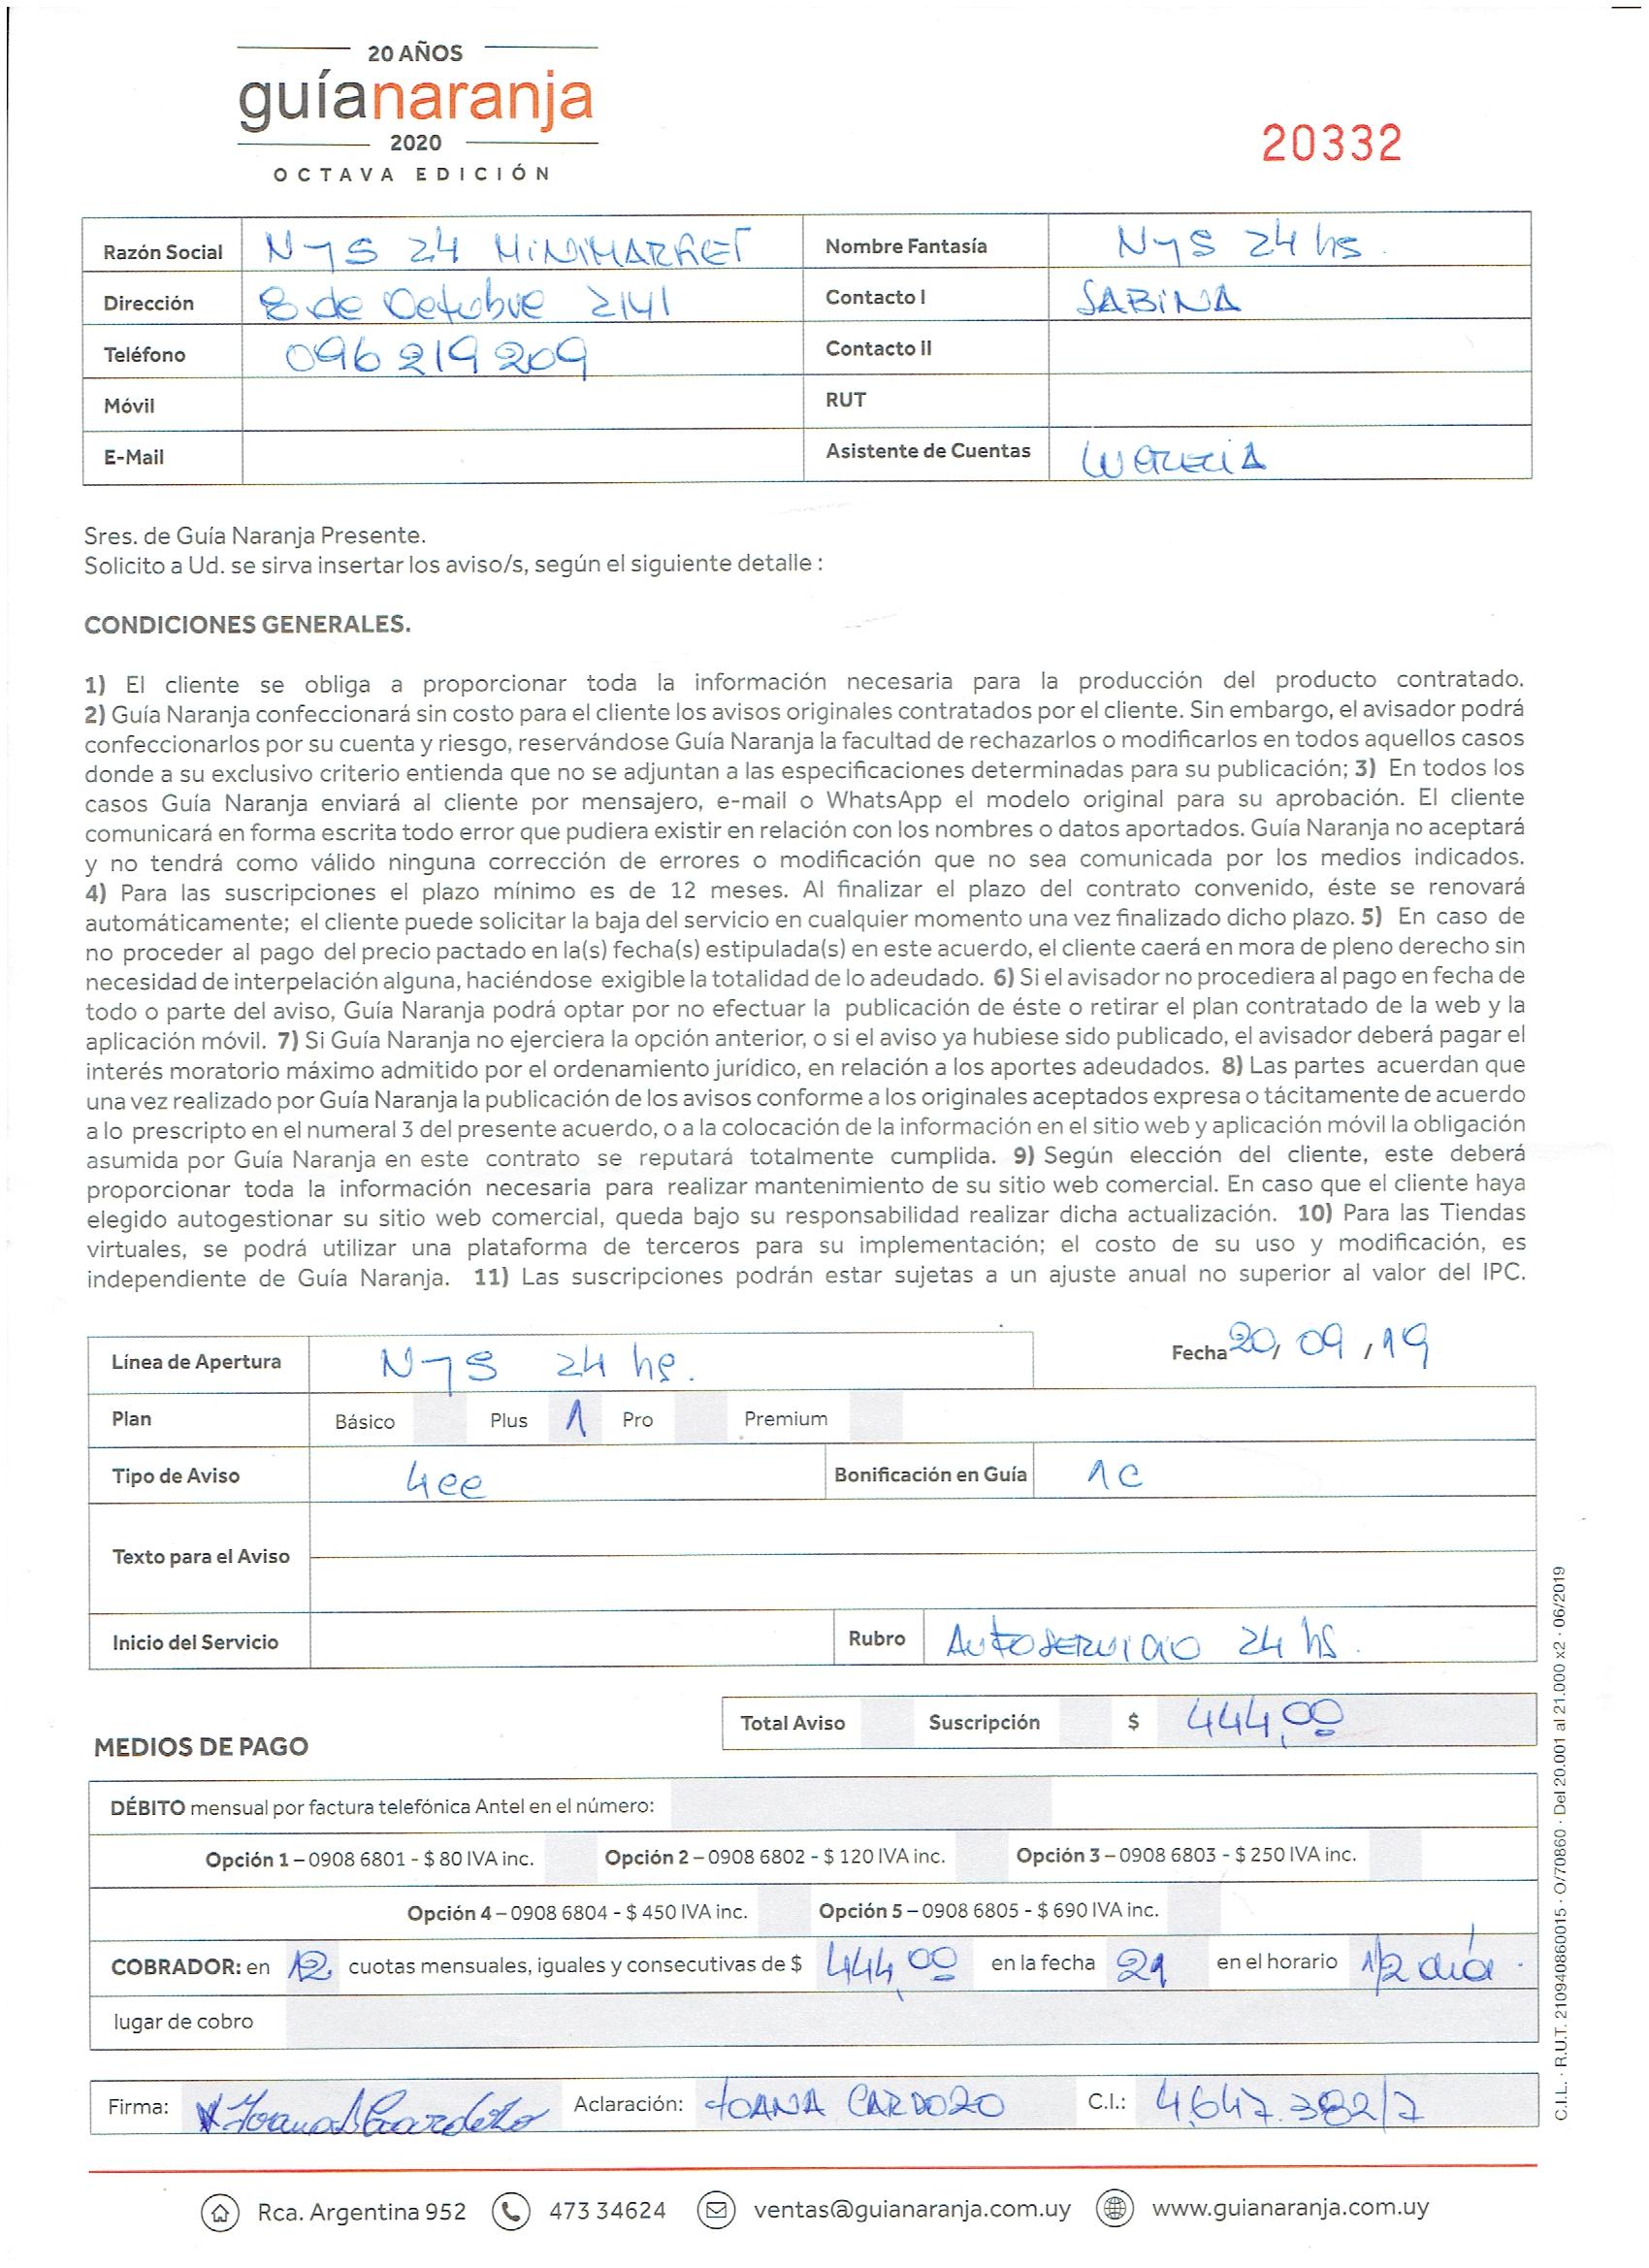 20 AÑOS
guíanaranja
2020
OCTAVA EDICIÓN
20332
Razón Social NyS 24 MINIMARKET Nombre Fantasía NyS 24 hs.
Dirección 8 de Octubre 2141 Contacto I SABINA
Teléfono 096 219 209 Contacto II
Móvil RUT
E-Mail Asistente de Cuentas LUCRECIA
Sres. de Guía Naranja Presente.
Solicito a Ud. se sirva insertar los aviso/s, según el siguiente detalle :
CONDICIONES GENERALES.
1) El cliente se obliga a proporcionar toda la información necesaria para la producción del producto contratado.
2) Guía Naranja confeccionará sin costo para el cliente los avisos originales contratados por el cliente. Sin embargo, el avisador podrá
confeccionarlos por su cuenta y riesgo, reservándose Guía Naranja la facultad de rechazarlos o modificarlos en todos aquellos casos
donde a su exclusivo criterio entienda que no se adjuntan a las especificaciones determinadas para su publicación; 3) En todos los
casos Guía Naranja enviará al cliente por mensajero, e-mail o WhatsApp el modelo original para su aprobación. El cliente
comunicará en forma escrita todo error que pudiera existir en relación con los nombres o datos aportados. Guía Naranja no aceptará
y no tendrá como válido ninguna corrección de errores o modificación que no sea comunicada por los medios indicados.
4) Para las suscripciones el plazo mínimo es de 12 meses. Al finalizar el plazo del contrato convenido, éste se renovará
automáticamente; el cliente puede solicitar la baja del servicio en cualquier momento una vez finalizado dicho plazo. 5) En caso de
no proceder al pago del precio pactado en la(s) fecha(s) estipulada(s) en este acuerdo, el cliente caerá en mora de pleno derecho sin
necesidad de interpelación alguna, haciéndose exigible la totalidad de lo adeudado. 6) Si el avisador no procediera al pago en fecha de
todo o parte del aviso, Guía Naranja podrá optar por no efectuar la publicación de éste o retirar el plan contratado de la web y la
aplicación móvil. 7) Si Guía Naranja no ejerciera la opción anterior, o si el aviso ya hubiese sido publicado, el avisador deberá pagar el
interés moratorio máximo admitido por el ordenamiento jurídico, en relación a los aportes adeudados. 8) Las partes acuerdan que
una vez realizado por Guía Naranja la publicación de los avisos conforme a los originales aceptados expresa o tácitamente de acuerdo
a lo prescripto en el numeral 3 del presente acuerdo, o a la colocación de la información en el sitio web y aplicación móvil la obligación
asumida por Guía Naranja en este contrato se reputará totalmente cumplida. 9) Según elección del cliente, este deberá
proporcionar toda la información necesaria para realizar mantenimiento de su sitio web comercial. En caso que el cliente haya
elegido autogestionar su sitio web comercial, queda bajo su responsabilidad realizar dicha actualización. 10) Para las Tiendas
virtuales, se podrá utilizar una plataforma de terceros para su implementación; el costo de su uso y modificación, es
independiente de Guía Naranja. 11) Las suscripciones podrán estar sujetas a un ajuste anual no superior al valor del IPC.
Línea de Apertura NyS 24 hs. Fecha 20, 09, 19
Plan Básico Plus 1 Pro Premium
Tipo de Aviso 4cc Bonificación en Guía 1c
Texto para el Aviso
Inicio del Servicio Rubro AUTOSERVICIO 24 hS.
Total Aviso Suscripción $ 444,00
MEDIOS DE PAGO
DÉBITO mensual por factura telefónica Antel en el número:
Opción 1 – 0908 6801 - $ 80 IVA inc. Opción 2 – 0908 6802 - $ 120 IVA inc. Opción 3 – 0908 6803 - $ 250 IVA inc.
Opción 4 – 0908 6804 - $ 450 IVA inc. Opción 5 – 0908 6805 - $ 690 IVA inc.
COBRADOR: en 12 cuotas mensuales, iguales y consecutivas de $ 444,00 en la fecha 21 en el horario 1/2 día.
lugar de cobro
Firma: Joana Cardozo Aclaración: JOANA CARDOZO C.I.: 4.647.382/7
Rca. Argentina 952 473 34624 ventas@guianaranja.com.uy www.guianaranja.com.uy
C.I.L. · R.U.T. 210940860015 · O/70860 · Del 20.001 al 21.000 x2 · 06/2019